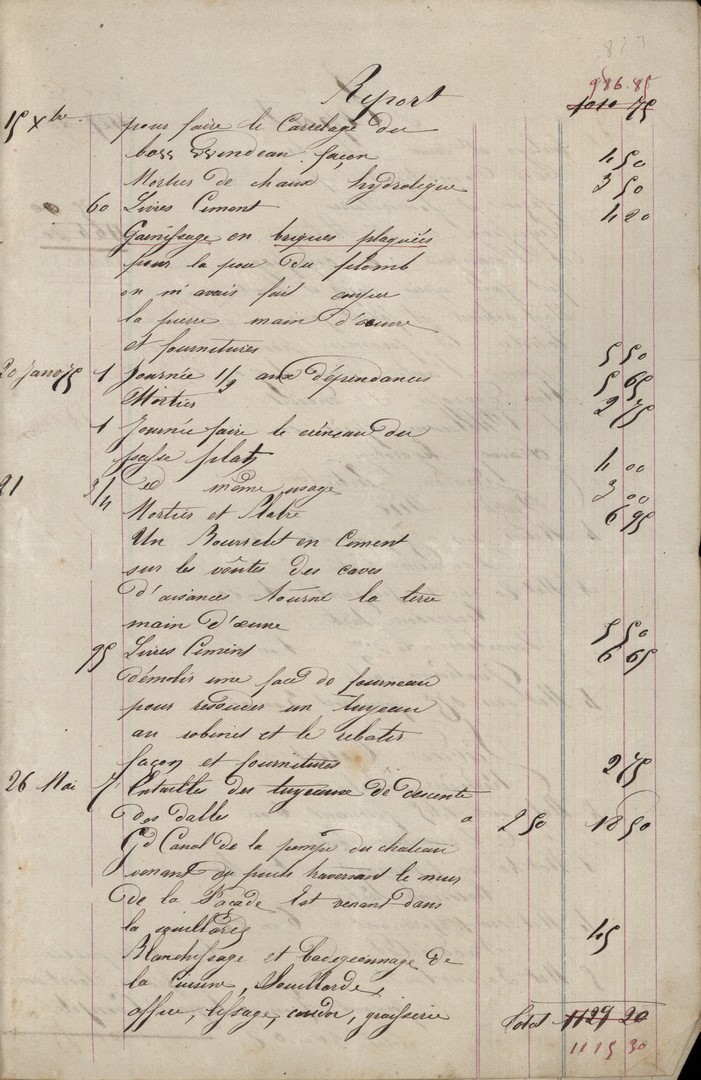 877
986.85
Report 1010 75
15 Xbre pour faire le Carrelage du
façon 4 50
Mortier de chaux hydrolique 3 50
60 Livres Ciment 4 20
Garnissage en briques plaquées
pour la pose du plomb
on m'avais fait couper
la pierre main d'œuvre
et fournitures 5 50
20 Janv 75 1 Journée 1/2 aux dépendances 5 65
Mortier 2 75
1 Journée faire le créneau du
passe plats 4 00
21 3/4 id même usage 3 00
Mortier et Platre 6 95
Un Bourrelet en Ciment
sur les voûtes des caves
d'aisances tourné la terre
main d'œuvre 5 50
95 Livres Ciment 6 65
démolir une face de fourneau
pour resouder un tuyeau
au robinet et le rebatir
façon et fournitures 2 75
26 Mai 7 Entailles des tuyeaux de descente
des dalles a 2 50 18 50
Gd Canal de la pompe du chateau
venant du puits traversant le mur
de la Façade Est venant dans
la souillarde 15
Blanchissage et badigeonnage de
la cuisine, Souillarde,
office, lissage, graisserie
Total 1129 20
1115 30